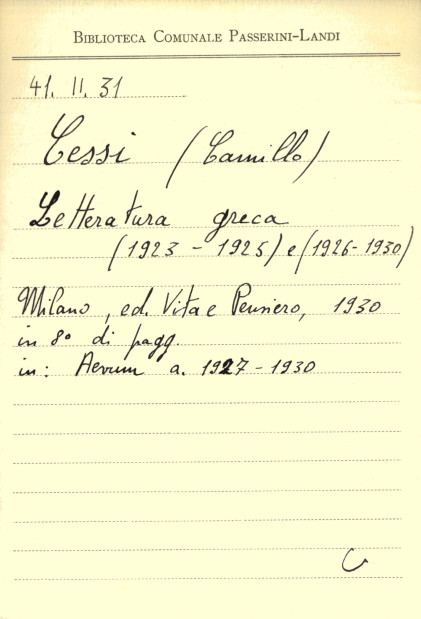 BIBLIOTECA COMUNALE PASSERINI-LANDI
41. II. 31
Cessi (Camillo)
Letteratura greca
(1923 - 1925) e (1926-1930)
Milano, ed. Vita e Pensiero, 1930
in 8° di pagg.
in: Aevum a. 1927-1930